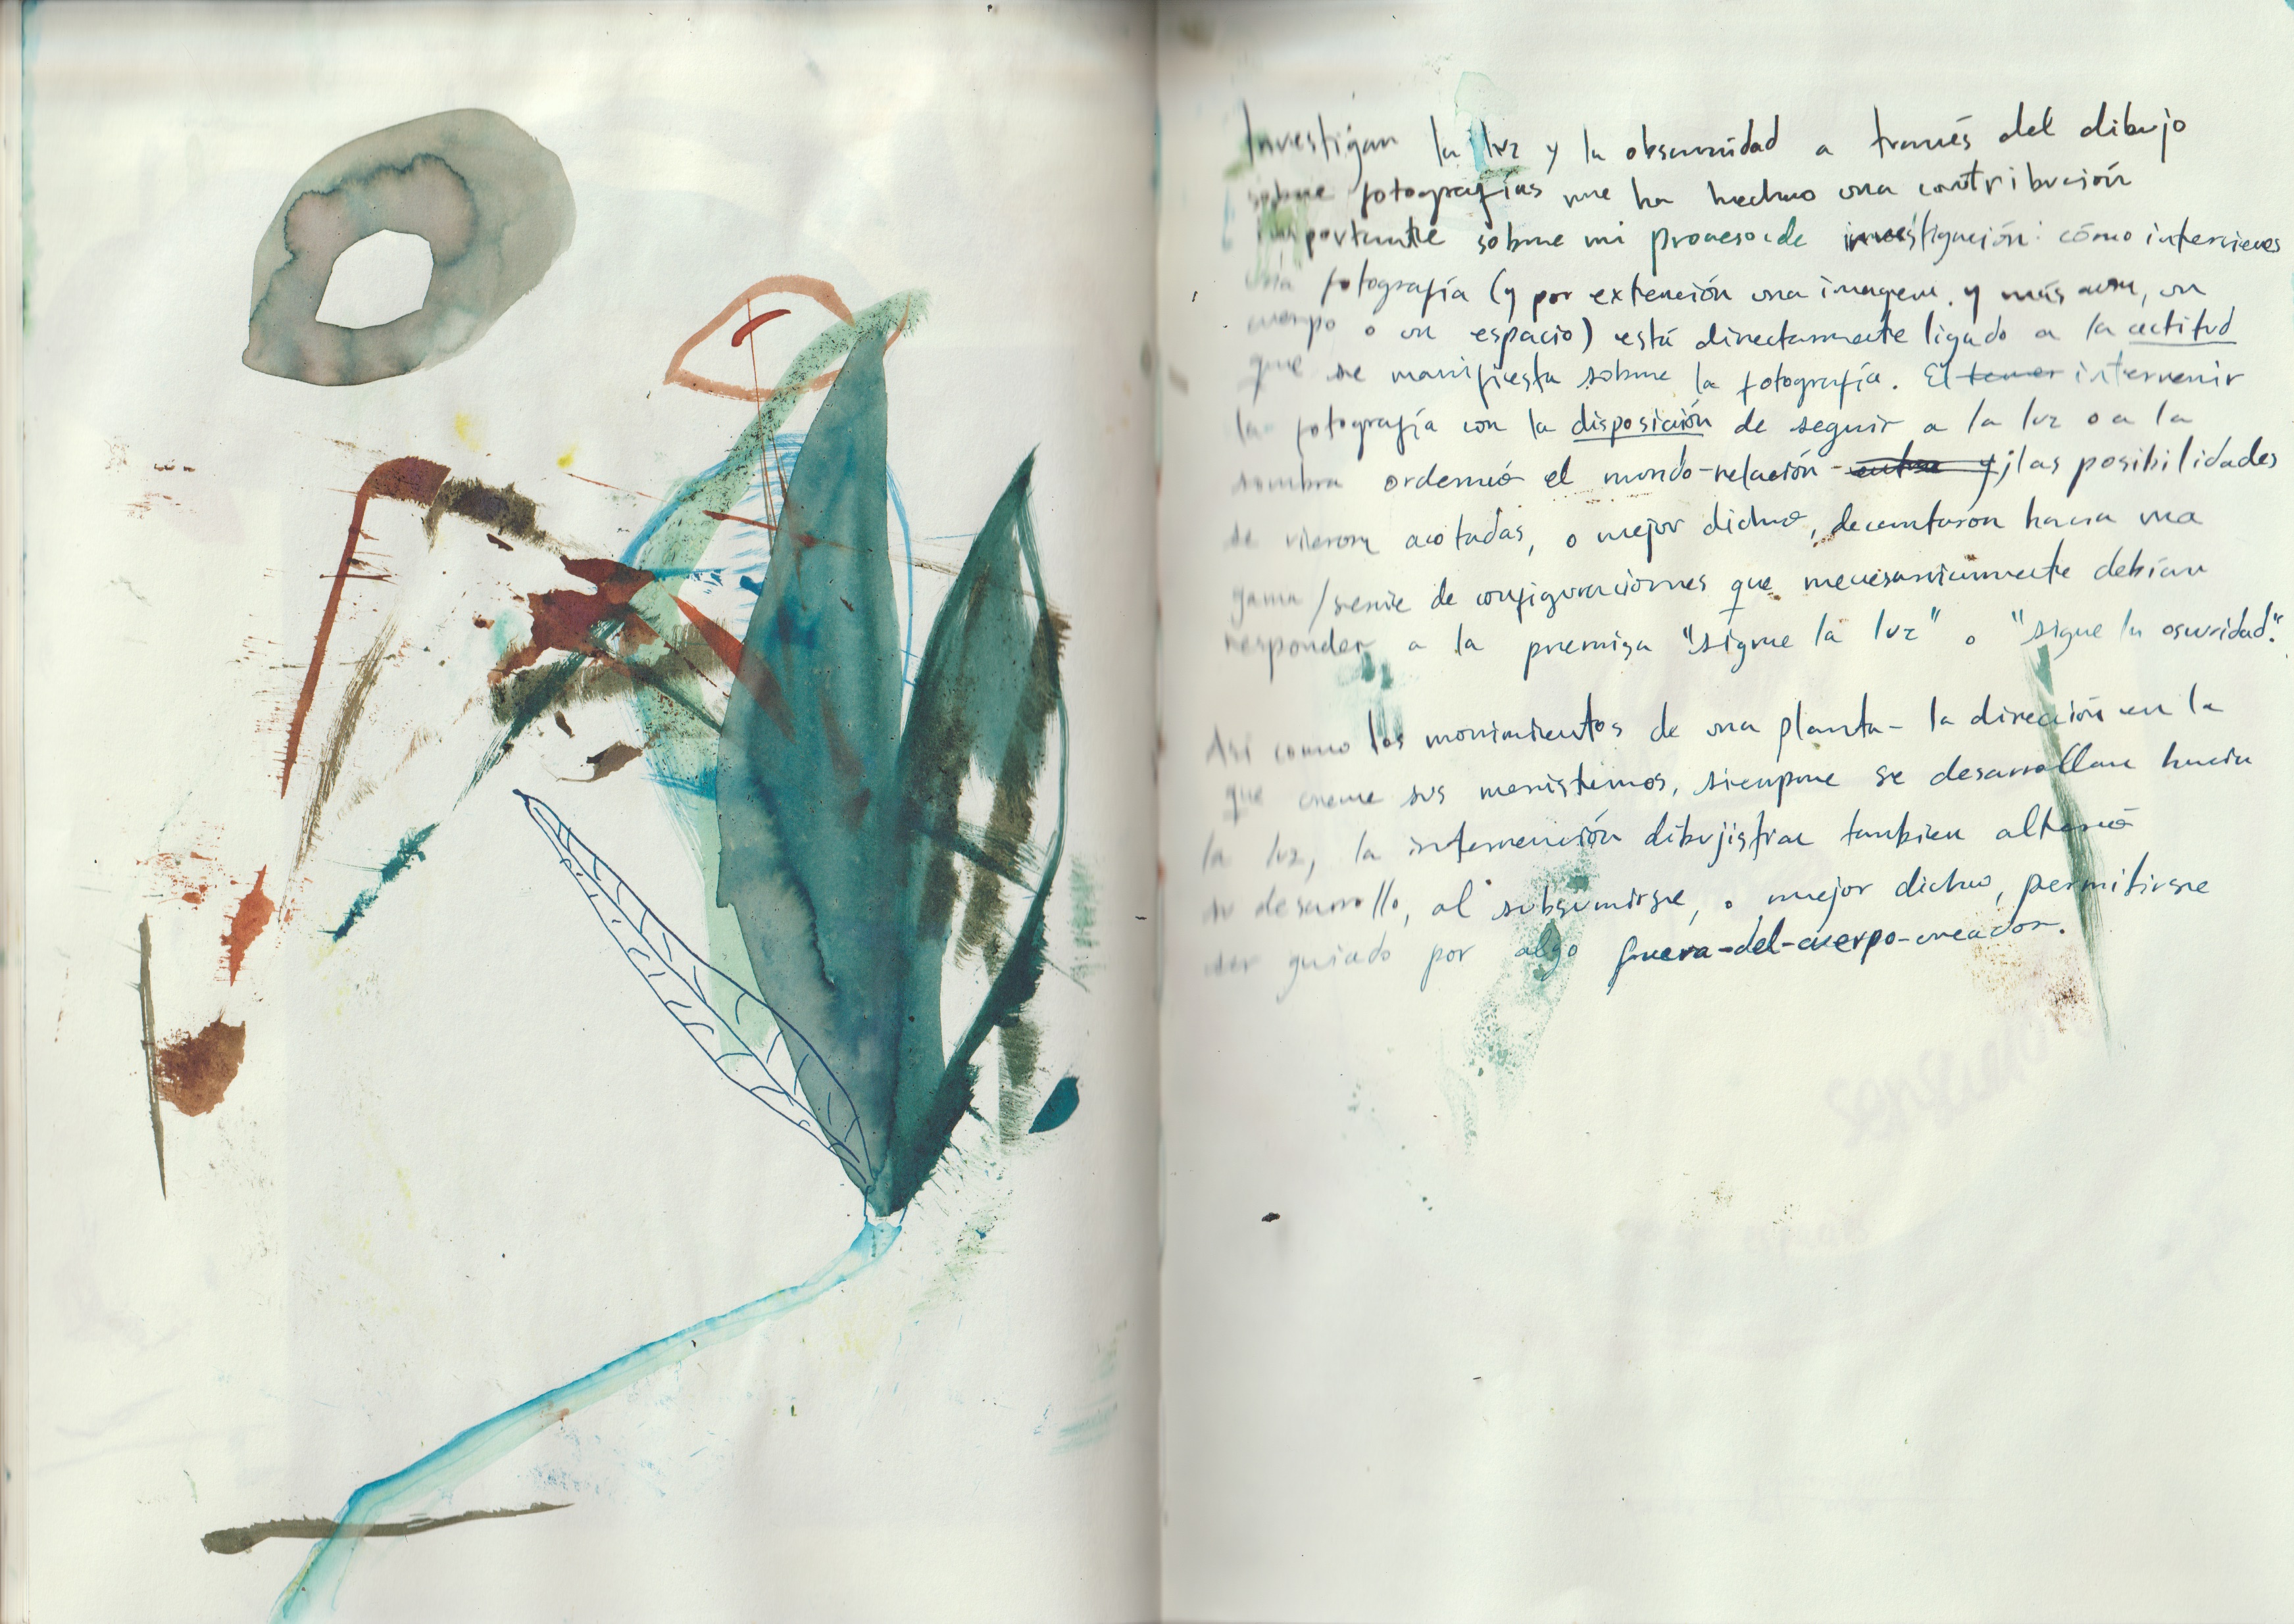 Investigar la luz y la obscuridad a través del dibujo
sobre fotografías me ha hecho una contribución
importante sobre mi proceso de investigación: cómo intervienes
una fotografía (y por extención una imagen, y más aun, un
cuerpo o un espacio) está directamente ligado a la actitud
que se manifiesta sobre la fotografía. El tener intervenir
la fotografía con la disposición de seguir a la luz o a la
sombra ordenó el mundo-relación - entre y; las posibilidades
se vieron acotadas, o mejor dicho, decantaron hacia una
gama/serie de configuraciones que necesariamente debían
responder a la premisa "sigue la luz" o "sigue la oscuridad".
Así como los movimientos de una planta - la direción en la
que crece sus meristemos, siempre se desarrollan hacia
la luz, la intervención dibujistica tambien alteró
su desarrollo, al subsumirse, o mejor dicho, permitirse
ser guiado por algo fuera-del-cuerpo-creador.